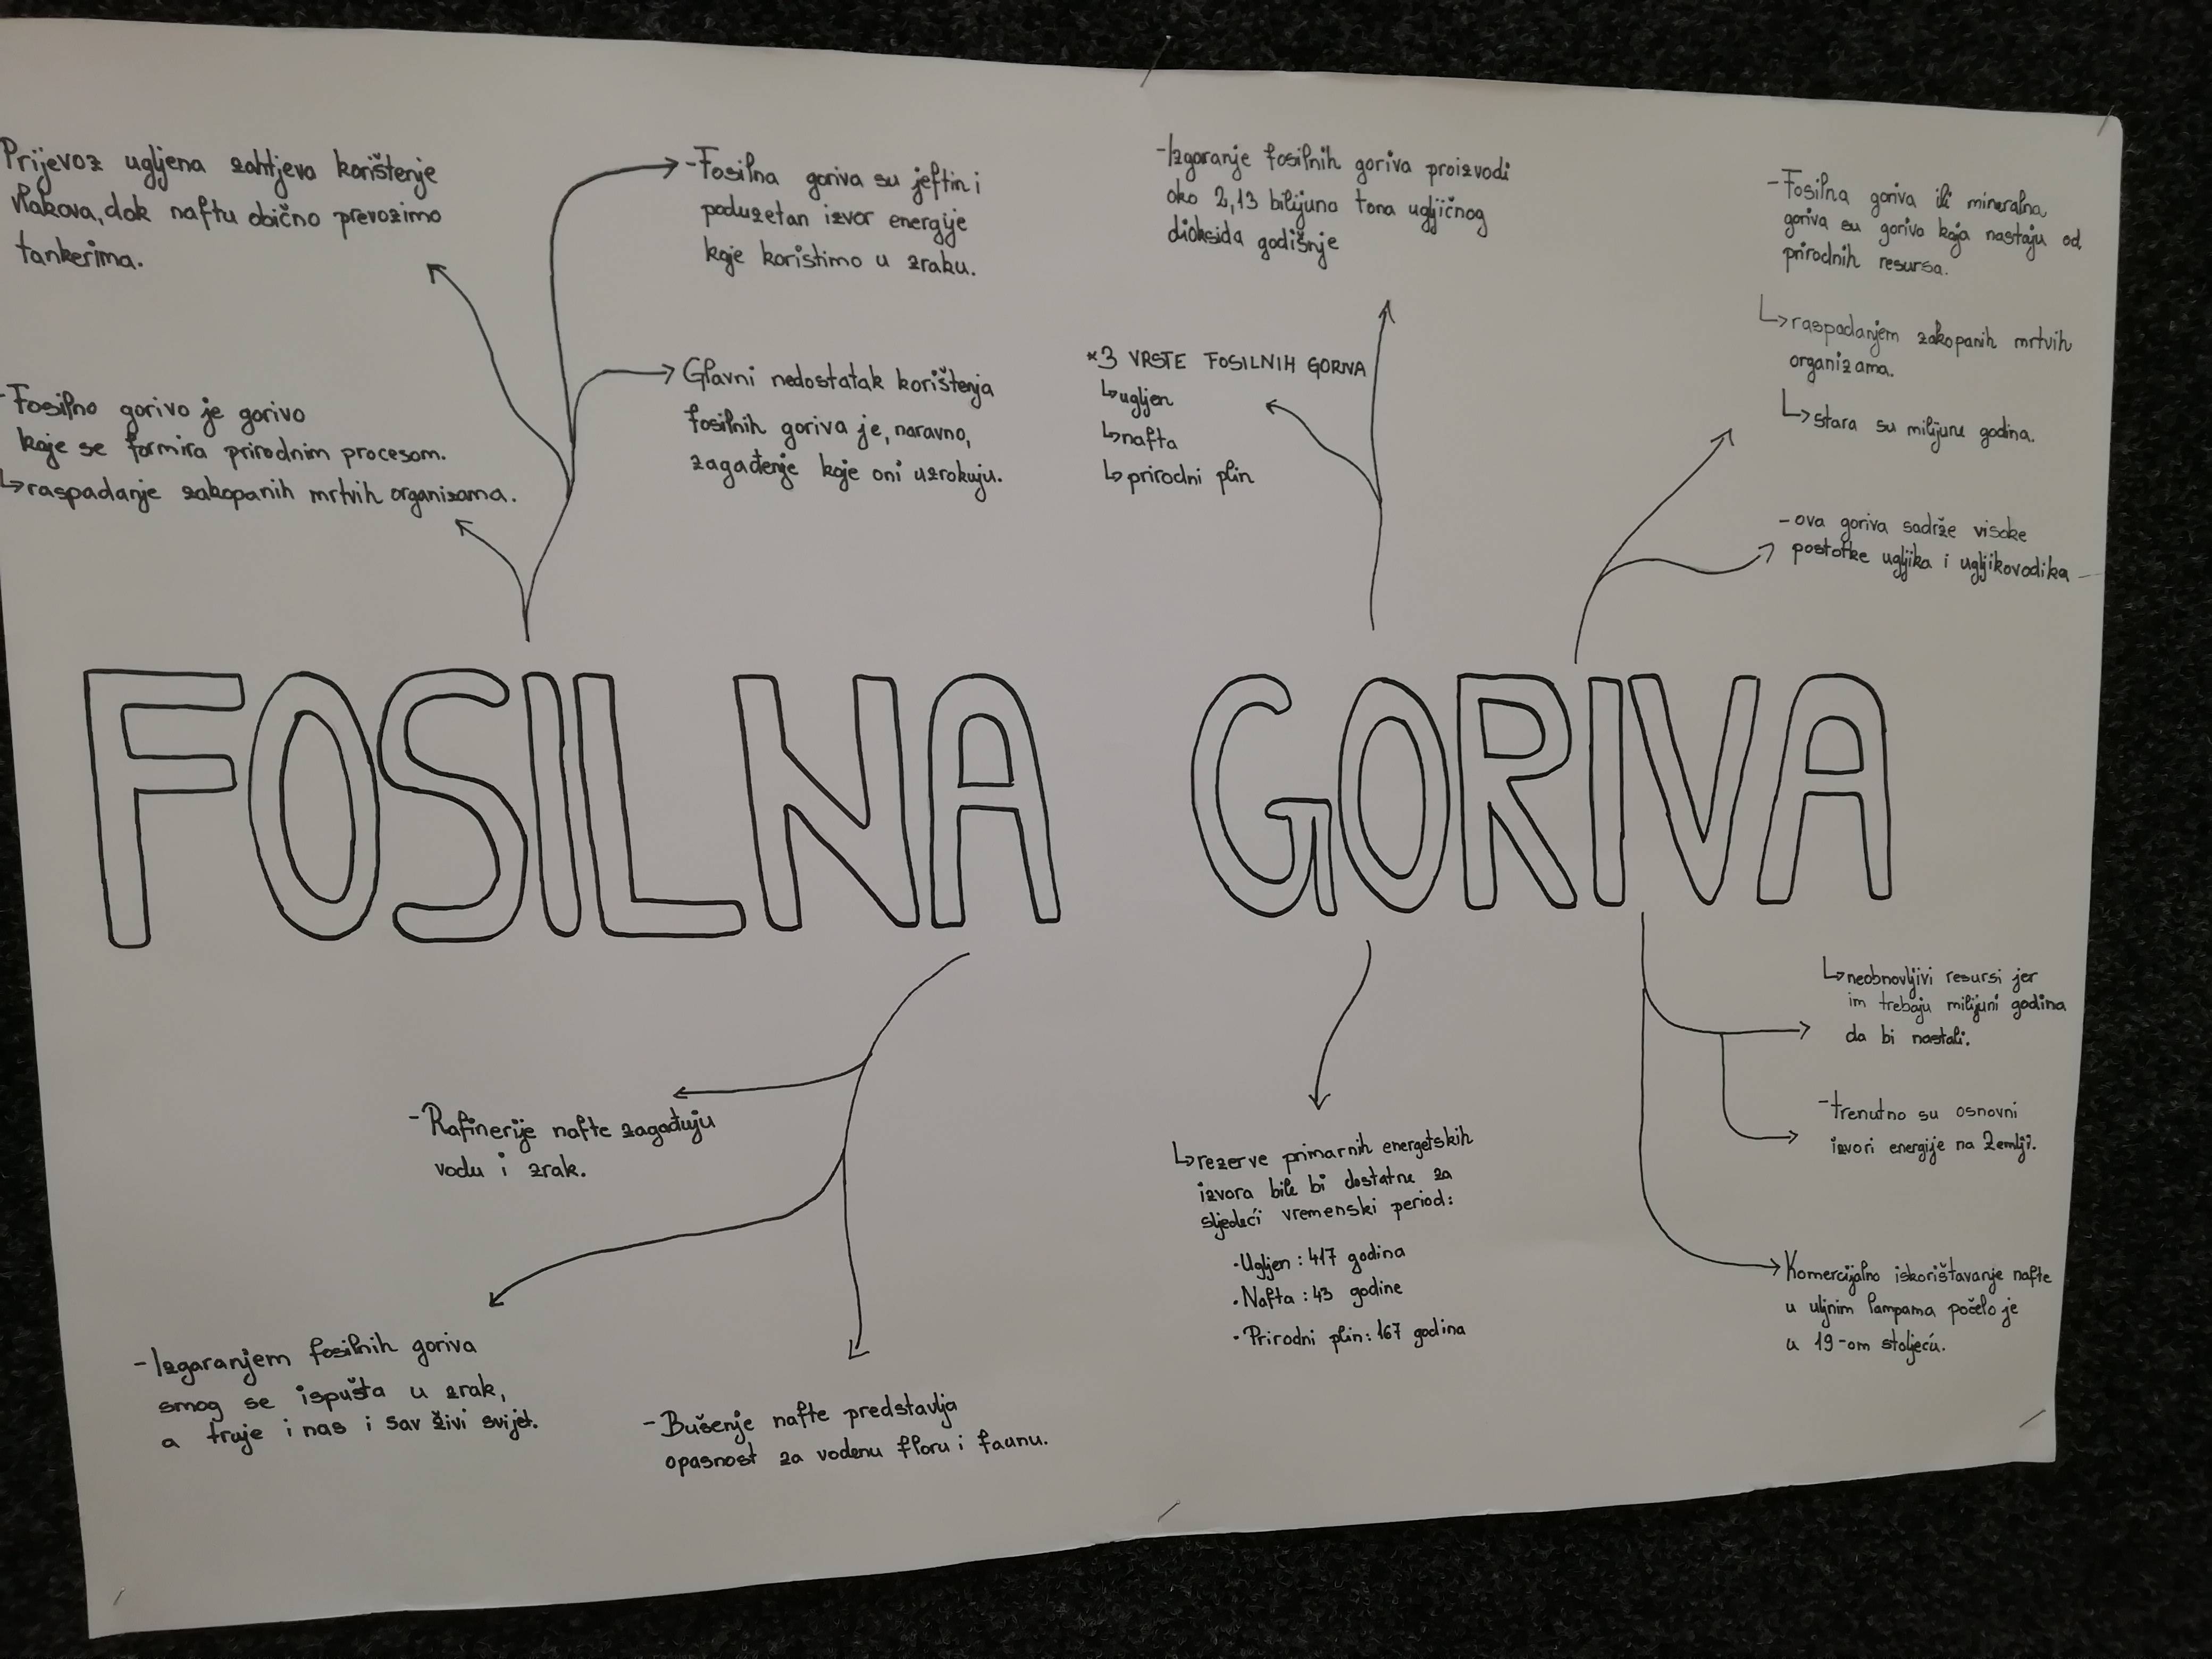 Prijevoz ugljena zahtjeva korištenje
vlakova, dok naftu obično prevozimo
tankerima.
-Fosilna goriva su jeftin i
poduzetan izvor energije
koje koristimo u zraku.
-Izgaranje fosilnih goriva proizvodi
oko 2,13 bilijuna tona ugljičnog
dioksida godišnje
-Fosilna goriva ili mineralna
goriva su goriva koja nastaju od
prirodnih resursa.
↳raspadanjem zakopanih mrtvih
organizama.
↳stara su milijune godina.
-Fosilno gorivo je gorivo
koje se formira prirodnim procesom.
↳raspadanje zakopanih mrtvih organizama.
Glavni nedostatak korištenja
fosilnih goriva je, naravno,
zagađenje koje oni uzrokuju.
*3 VRSTE FOSILNIH GORIVA
↳ugljen
↳nafta
↳prirodni plin
-ova goriva sadrže visoke
postotke ugljika i ugljikovodika
FOSILNA GORIVA
-Rafinerije nafte zagađuju
vodu i zrak.
-Izgaranjem fosilnih goriva
smog se ispušta u zrak,
a truje i nas i sav živi svijet.
-Bušenje nafte predstavlja
opasnost za vodenu floru i faunu.
↳rezerve primarnih energetskih
izvora bile bi dostatne za
sljedeći vremenski period:
·Ugljen: 417 godina
·Nafta: 43 godine
·Prirodni plin: 167 godina
↳neobnovljivi resursi jer
im trebaju milijuni godina
da bi nastali.
-trenutno su osnovni
izvori energije na Zemlji.
Komercijalno iskorištavanje nafte
u uljnim lampama počelo je
u 19-om stoljeću.